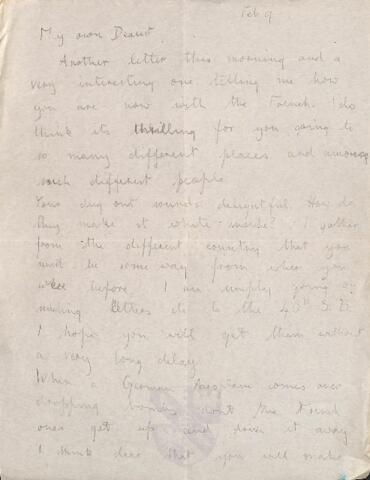 Feb 9
My own Dearest.
Another letter this morning and a
very interesting one telling me how
you are now with the French. I do
think its thrilling for you going to
so many different places and among
such different people.
Your dug out sounds delightful. How do
they make it white inside? I gather
from the different country that you
must be some way from where you
were before. I am simply going on
sending letters etc to the
I hope you will get them without
a very long delay.
When a German aeroplane comes over
dropping bombs dont the French
ones get up and drive it away
I think dear that you will make